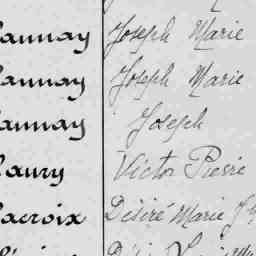 aunay Joseph Marie
aunay Joseph Marie
aunay Joseph
aury Victor Pierre
acroix Désiré Marie